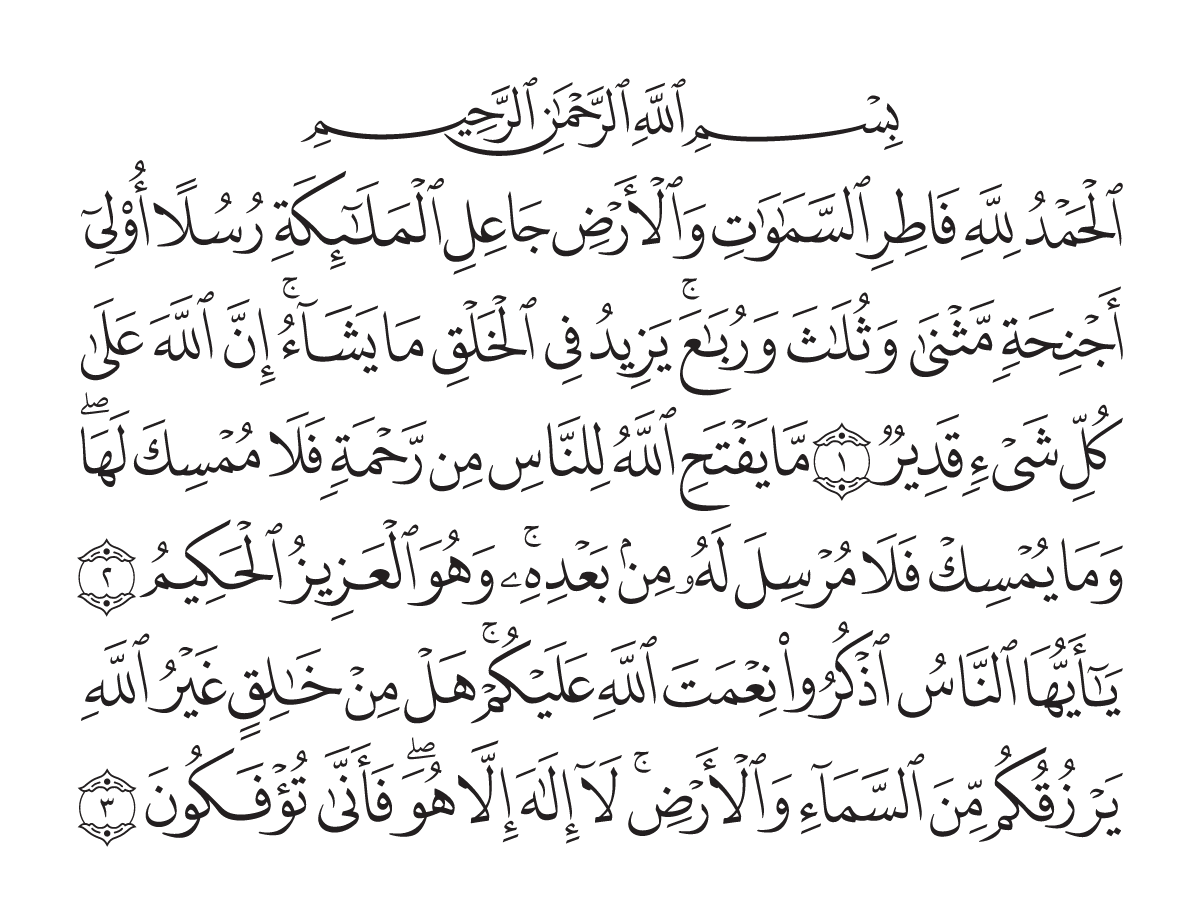 بِسْمِ ٱللَّهِ ٱلرَّحْمَٰنِ ٱلرَّحِيمِ
ٱلْحَمْدُ لِلَّهِ فَاطِرِ ٱلسَّمَٰوَٰتِ وَٱلْأَرْضِ جَاعِلِ ٱلْمَلَٰٓئِكَةِ رُسُلًا أُو۟لِىٓ
أَجْنِحَةٍ مَّثْنَىٰ وَثُلَٰثَ وَرُبَٰعَ ۚ يَزِيدُ فِى ٱلْخَلْقِ مَا يَشَآءُ ۚ إِنَّ ٱللَّهَ عَلَىٰ
كُلِّ شَىْءٍ قَدِيرٌ ۝١ مَّا يَفْتَحِ ٱللَّهُ لِلنَّاسِ مِن رَّحْمَةٍ فَلَا مُمْسِكَ لَهَا ۖ
وَمَا يُمْسِكْ فَلَا مُرْسِلَ لَهُۥ مِنۢ بَعْدِهِۦ ۚ وَهُوَ ٱلْعَزِيزُ ٱلْحَكِيمُ ۝٢
يَٰٓأَيُّهَا ٱلنَّاسُ ٱذْكُرُوا۟ نِعْمَتَ ٱللَّهِ عَلَيْكُمْ ۚ هَلْ مِنْ خَٰلِقٍ غَيْرُ ٱللَّهِ
يَرْزُقُكُم مِّنَ ٱلسَّمَآءِ وَٱلْأَرْضِ ۚ لَآ إِلَٰهَ إِلَّا هُوَ ۖ فَأَنَّىٰ تُؤْفَكُونَ ۝٣